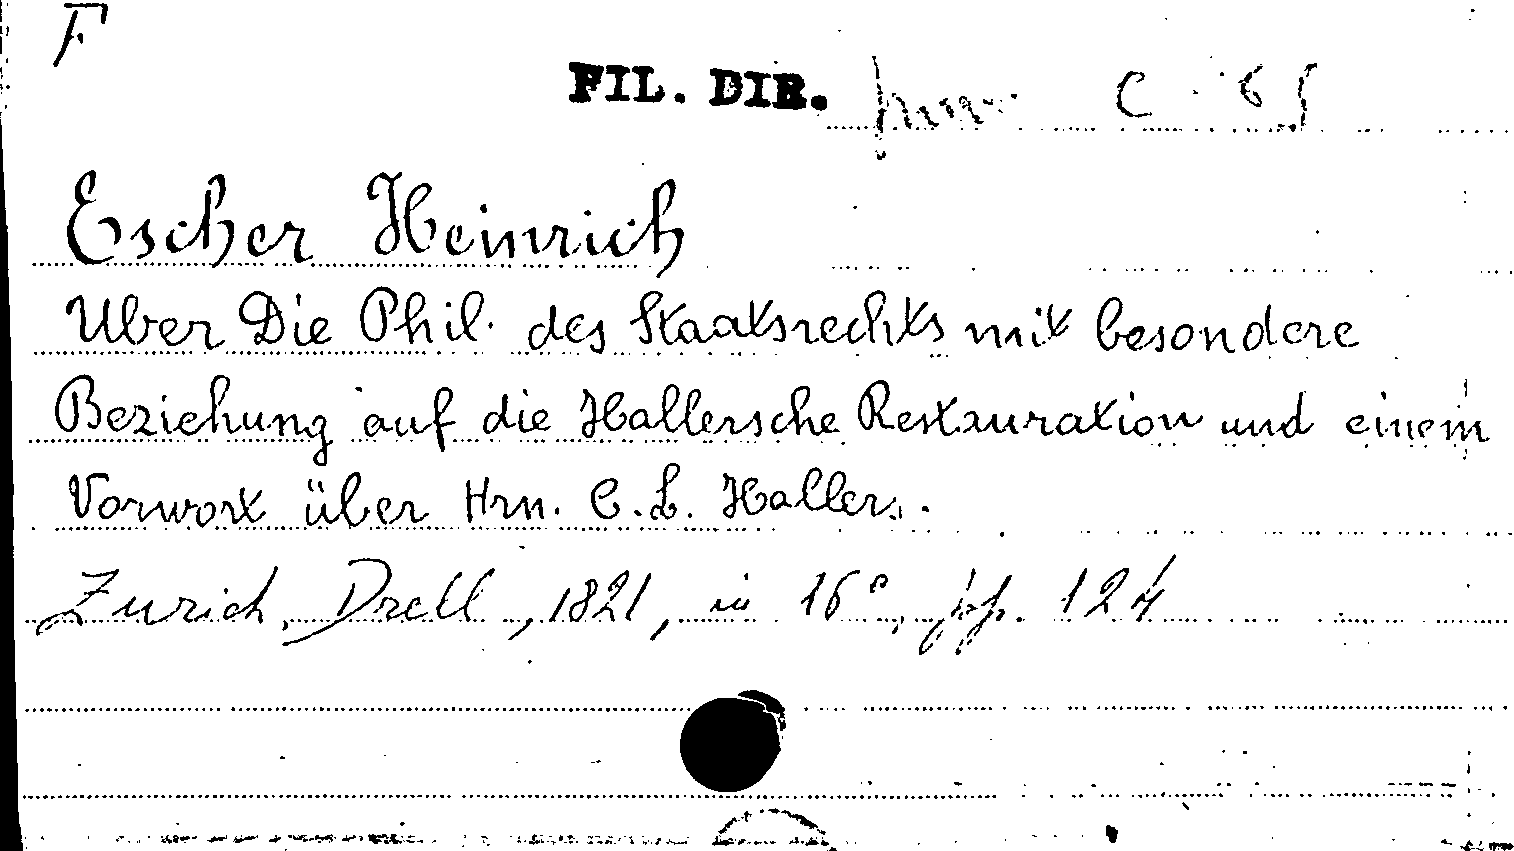 F
FIL. DIR. C 65
Escher Heinrich
Uber Die Phil. des Staatsrechts mit besondere
Beziehung auf die Hallersche Restauration und einem
Vorwort über Hrn. C. L. Hallers.
Zurich, Drell, 1821, in 16°, pp. 124